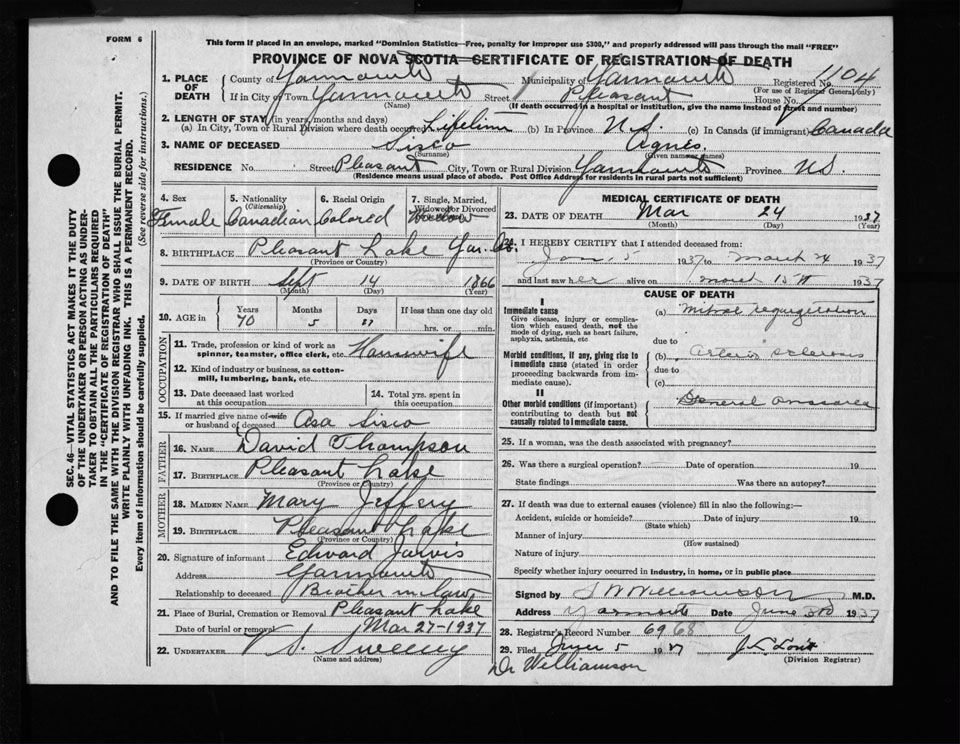 FORM 6
This form if placed in an envelope, marked "Dominion Statistics—Free, penalty for improper use $300," and properly addressed will pass through the mail "FREE"
PROVINCE OF NOVA SCOTIA—CERTIFICATE OF REGISTRATION OF DEATH
1. PLACE OF DEATH County of Yarmouth Municipality of Yarmouth Registered No. 1104
(For use of Registrar General only)
If in City of Town Yarmouth Street Pleasant House No.
(Name) (If death occurred in a hospital or institution, give the name instead of street and number)
2. LENGTH OF STAY (in years, months and days)
(a) In City, Town or Rural Division where death occurred Lifetime (b) In Province N.S. (c) In Canada (if immigrant) Canada
3. NAME OF DECEASED Sisco Agnes
(Surname) (Given name or names)
RESIDENCE No. Street Pleasant City, Town or Rural Division Yarmouth Province NS.
(Residence means usual place of abode. Post Office Address for residents in rural parts not sufficient)
4. Sex 5. Nationality (Citizenship) 6. Racial Origin 7. Single, Married, Widowed or Divorced
Female Canadian Colored Widow
8. BIRTHPLACE Pleasant Lake Yar. Co.
(Province or Country)
9. DATE OF BIRTH Sept 14 1866
(Month) (Day) (Year)
10. AGE in Years Months Days If less than one day old
70 5 hrs. or min.
OCCUPATION
11. Trade, profession or kind of work as spinner, teamster, office clerk, etc. Housewife
12. Kind of industry or business, as cotton-mill, lumbering, bank, etc.
13. Date deceased last worked at this occupation
14. Total yrs. spent in this occupation
15. If married give name of wife or husband of deceased Asa Sisco
FATHER
16. NAME David Thompson
17. BIRTHPLACE Pleasant Lake
(Province or Country)
MOTHER
18. MAIDEN NAME Mary Jeffery
19. BIRTHPLACE Pleasant Lake
(Province or Country)
20. Signature of informant Edward Jarvis
Address Yarmouth
Relationship to deceased Brother in law
21. Place of Burial, Cremation or Removal Pleasant Lake
Date of burial or removal Mar 27-1937
22. UNDERTAKER V. S. Sweeny
(Name and address)
MEDICAL CERTIFICATE OF DEATH
23. DATE OF DEATH Mar 24 1937
(Month) (Day) (Year)
24. I HEREBY CERTIFY that I attended deceased from:
Jan 5 1937 to March 24 1937
and last saw her alive on March 15th 1937
CAUSE OF DEATH
I
Immediate cause
Give disease, injury or complication which caused death, not the mode of dying, such as heart failure, asphyxia, asthenia, etc
(a) Mitral regurgitation
due to
Morbid conditions, if any, giving rise to immediate cause (stated in order proceeding backwards from immediate cause).
(b) arterio sclerosis
due to
(c)
II
Other morbid conditions (if important) contributing to death but not causally related to immediate cause.
General anasarca
25. If a woman, was the death associated with pregnancy?
26. Was there a surgical operation? Date of operation 19
State findings Was there an autopsy?
27. If death was due to external causes (violence) fill in also the following:—
Accident, suicide or homicide? Date of injury 19
(State which)
Manner of injury
(How sustained)
Nature of injury
Specify whether injury occurred in industry, in home, or in public place
Signed by S W Williamson M.D.
Address Yarmouth Date June 3rd 1937
28. Registrar's Record Number 6968
29. Filed June 5 1937
(Division Registrar)
Dr Williamson
SEC. 46—VITAL STATISTICS ACT MAKES IT THE DUTY
OF THE UNDERTAKER OR PERSON ACTING AS UNDER-
TAKER TO OBTAIN ALL THE PARTICULARS REQUIRED
IN THE "CERTIFICATE OF REGISTRATION OF DEATH"
AND TO FILE THE SAME WITH THE DIVISION REGISTRAR WHO SHALL ISSUE THE BURIAL PERMIT.
WRITE PLAINLY WITH UNFADING INK. THIS IS A PERMANENT RECORD.
Every item of information should be carefully supplied. (See reverse side for instructions.)